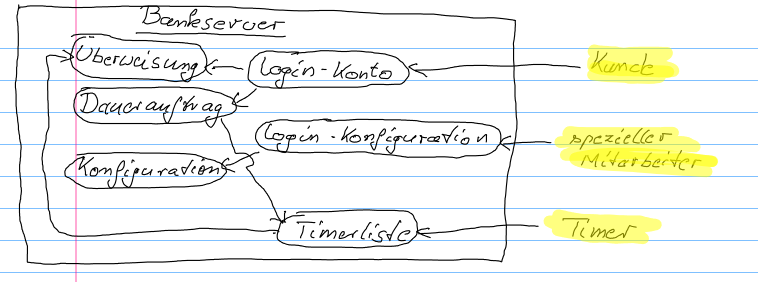 Bankserver
Überweisung
Login-Konto
Kunde
Dauerauftrag
Login-Konfiguration
spezieller
Mitarbeiter
Konfiguration
Timerliste
Timer